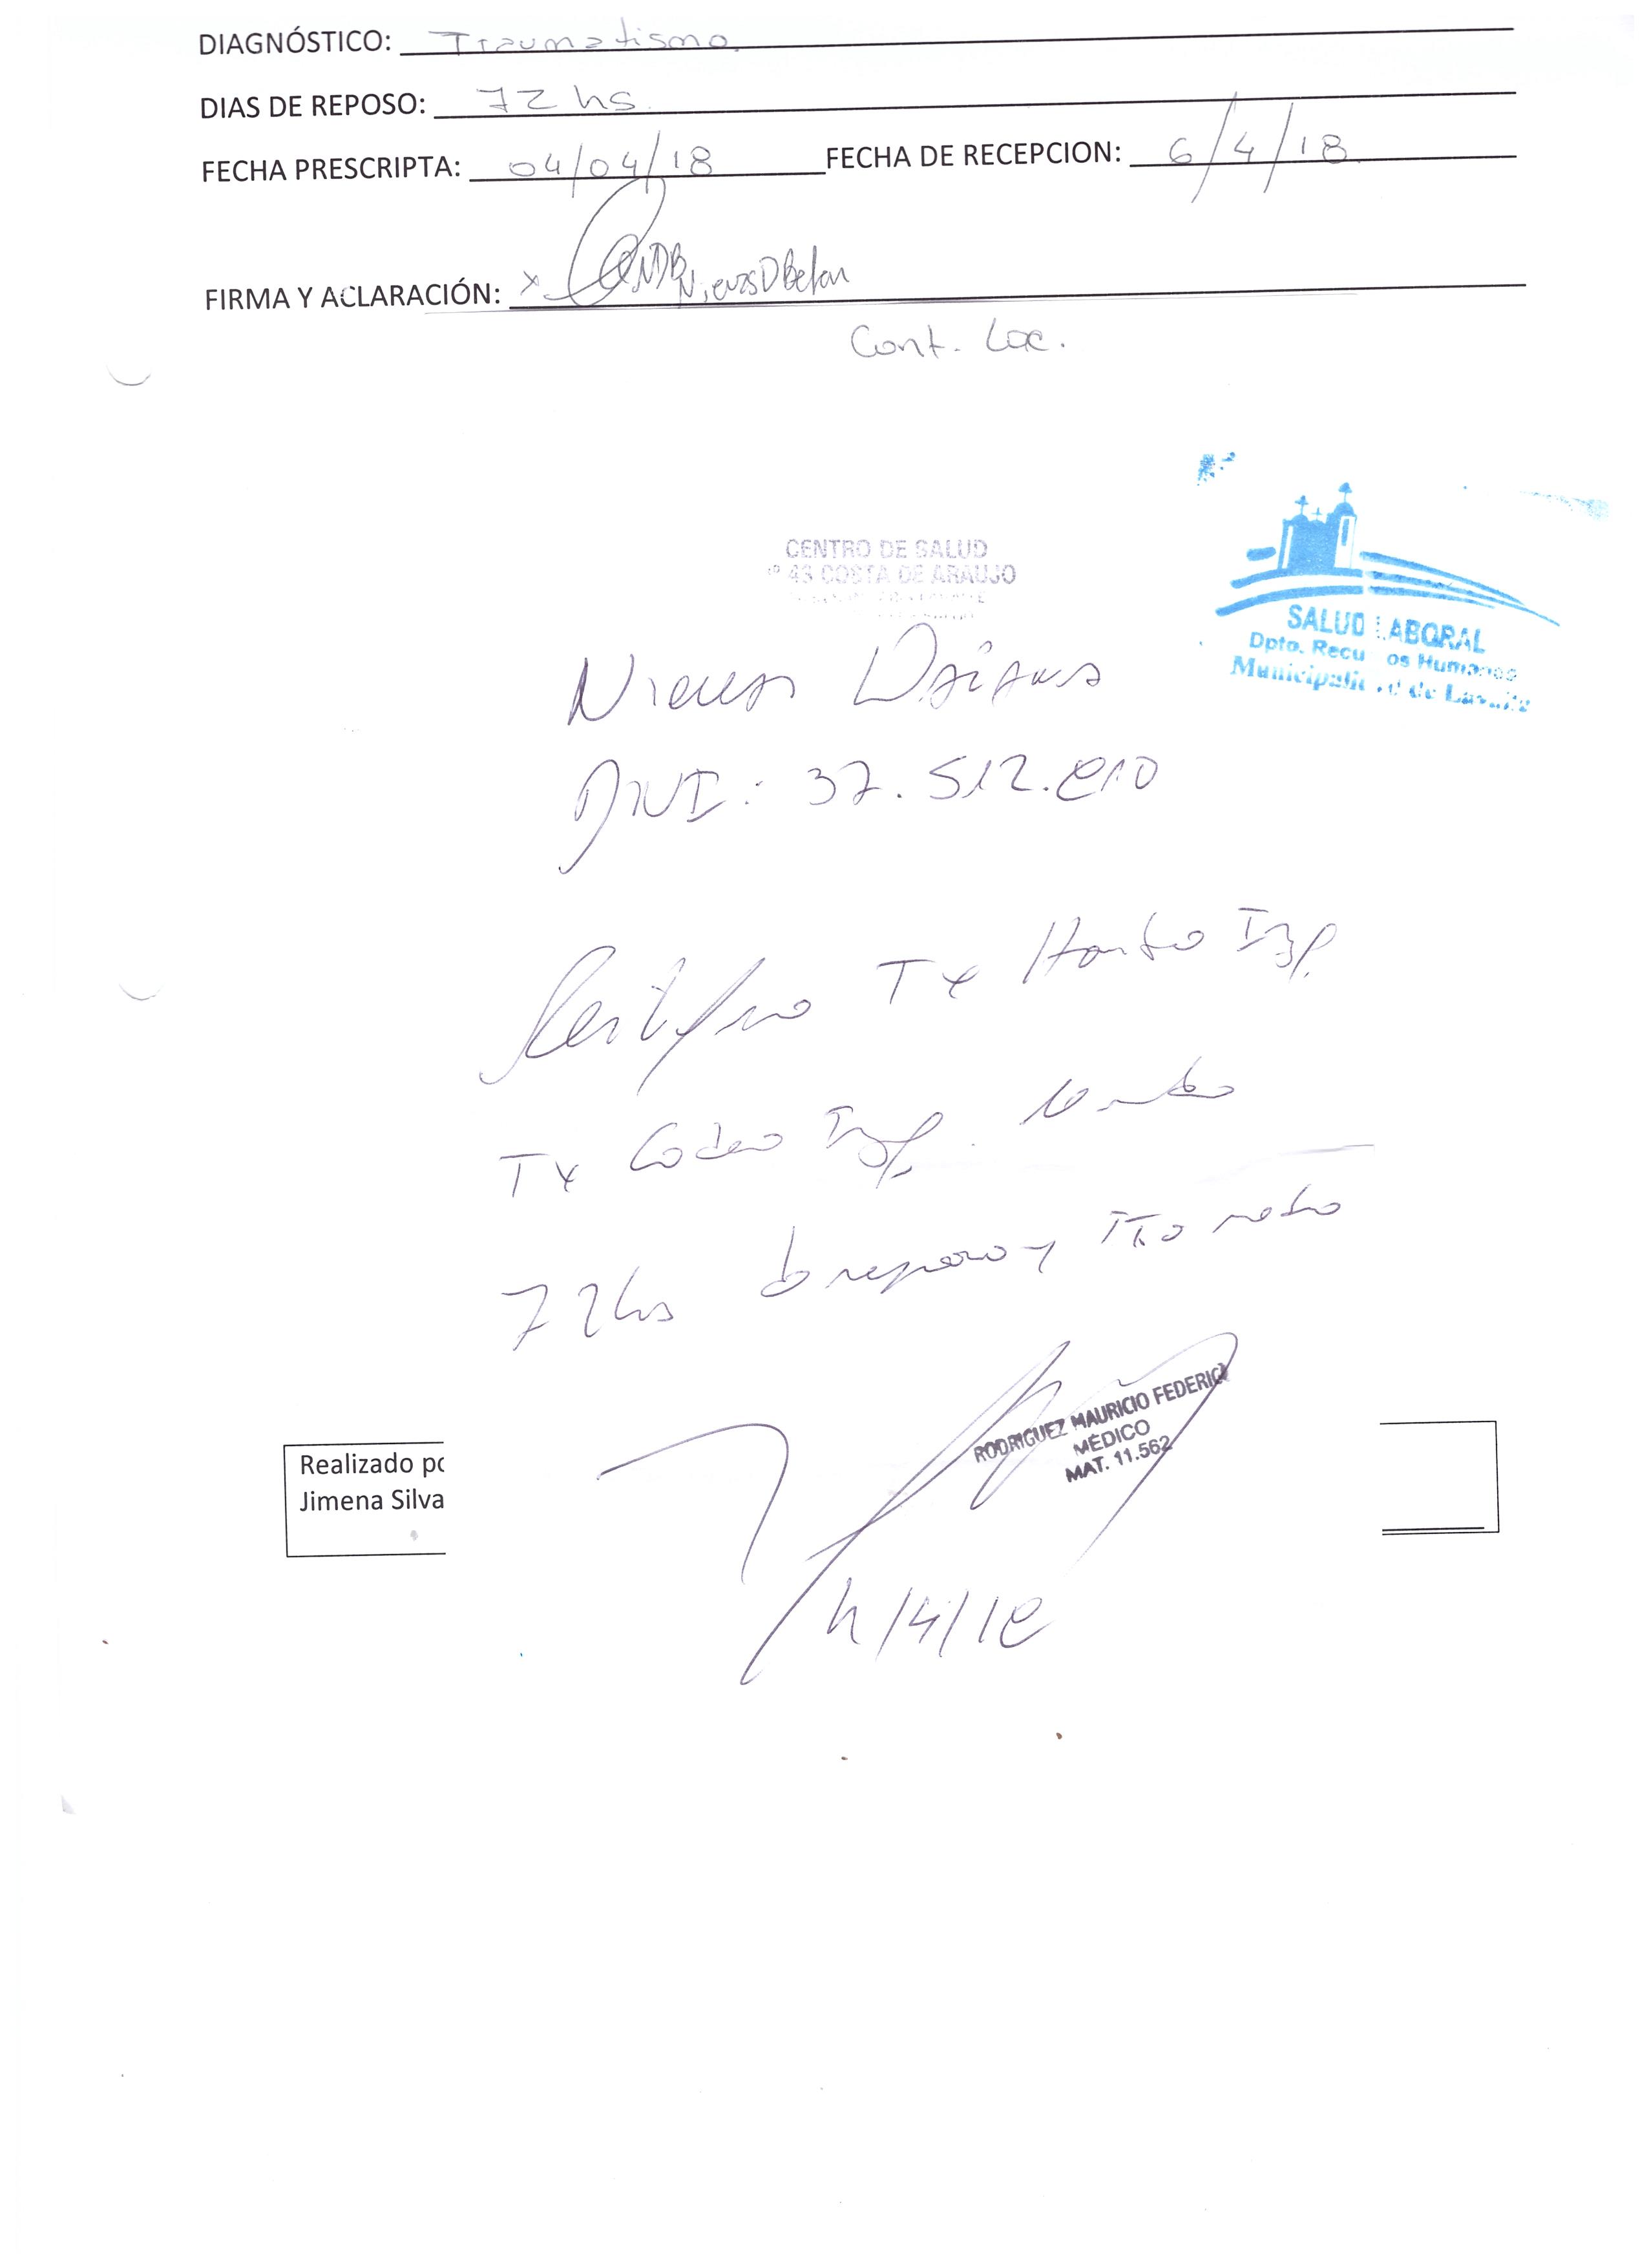 DIAGNÓSTICO: Traumatismo.
DIAS DE REPOSO: 72 hs.
FECHA PRESCRIPTA: 04/04/18 FECHA DE RECEPCION: 6/4/18
FIRMA Y ACLARACIÓN: x Nievas D Belen
Cont. Loc.
CENTRO DE SALUD
Nº 43 COSTA DE ARAUJO
SALUD LABORAL
Dpto. Recu os Humanos
Municipali d de Lavalle
Nievas Daiana
DNI: 37.512.810
Certifico Tx Hombro Izq.
Tx Codo Izq.
72hs de reposo y tto
RODRIGUEZ MAURICIO FEDERICO
MÉDICO
MAT. 11.562
Realizado po
Jimena Silva
4/4/18